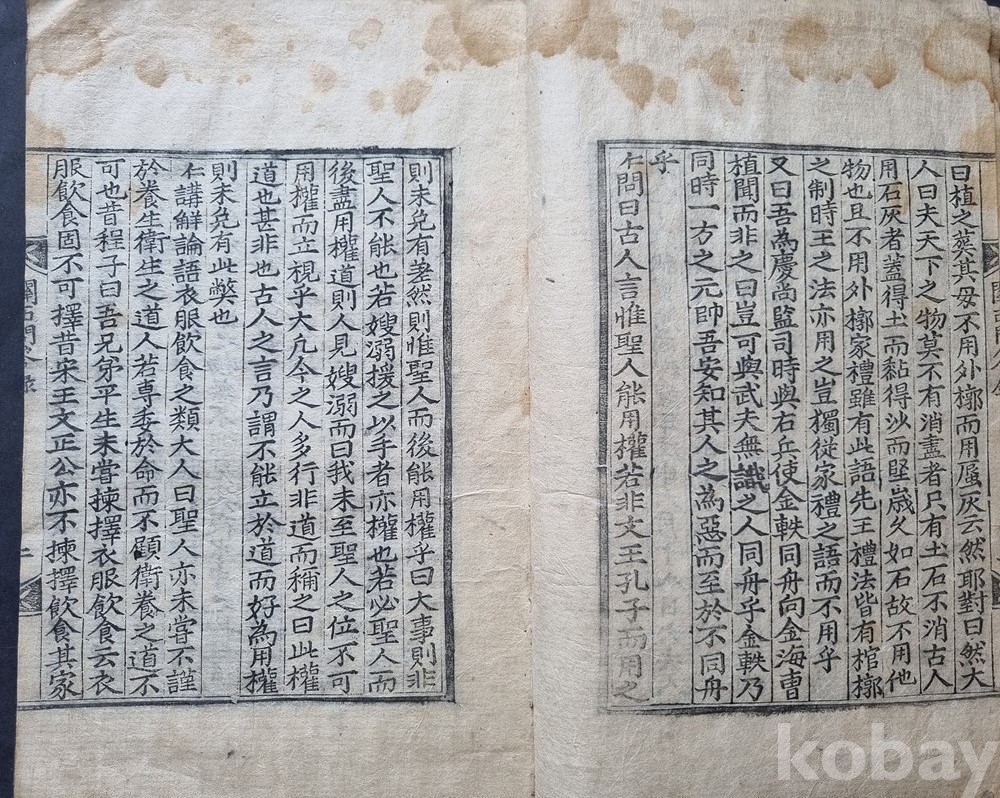 曰植之葬其母不用外槨而用蜃灰云然耶對曰然大
人曰夫天下之物莫不有消盡者只有土石不消古人
用石灰者蓋得土而黏得沙而堅歲久如石故不用他
物也且不用外槨家禮雖有此語先王禮法皆有棺槨
之制時王之法亦用之豈獨從家禮之語而不用乎
又曰吾為慶尚監司時與右兵使金軼同舟向金海曺
植聞而非之曰豈可與武夫無識之人同舟乎金軼乃
同時一方之元帥吾安知其人之為惡而至於不同舟
乎
仁問曰古人言惟聖人能用權若非文王孔子而用之
則未免有差然則惟聖人而後能用權乎曰大事則非
聖人不能也若嫂溺援之以手者亦權也若必聖人而
後盡用權道則人見嫂溺而曰我未至聖人之位不可
用權而立視乎大凡今之人多行非道而稱之曰此權
道也甚非也古人之言乃謂不能立於道而好為用權
則未免有此弊也
仁講解論語衣服飲食之類大人曰聖人亦未嘗不謹
於養生衛生之道人若專委於命而不顧衛養之道不
可也昔程子曰吾兄弟平生未嘗揀擇衣服飲食云衣
服飲食固不可擇昔宋王文正公亦不揀擇飲食其家
二
kobay